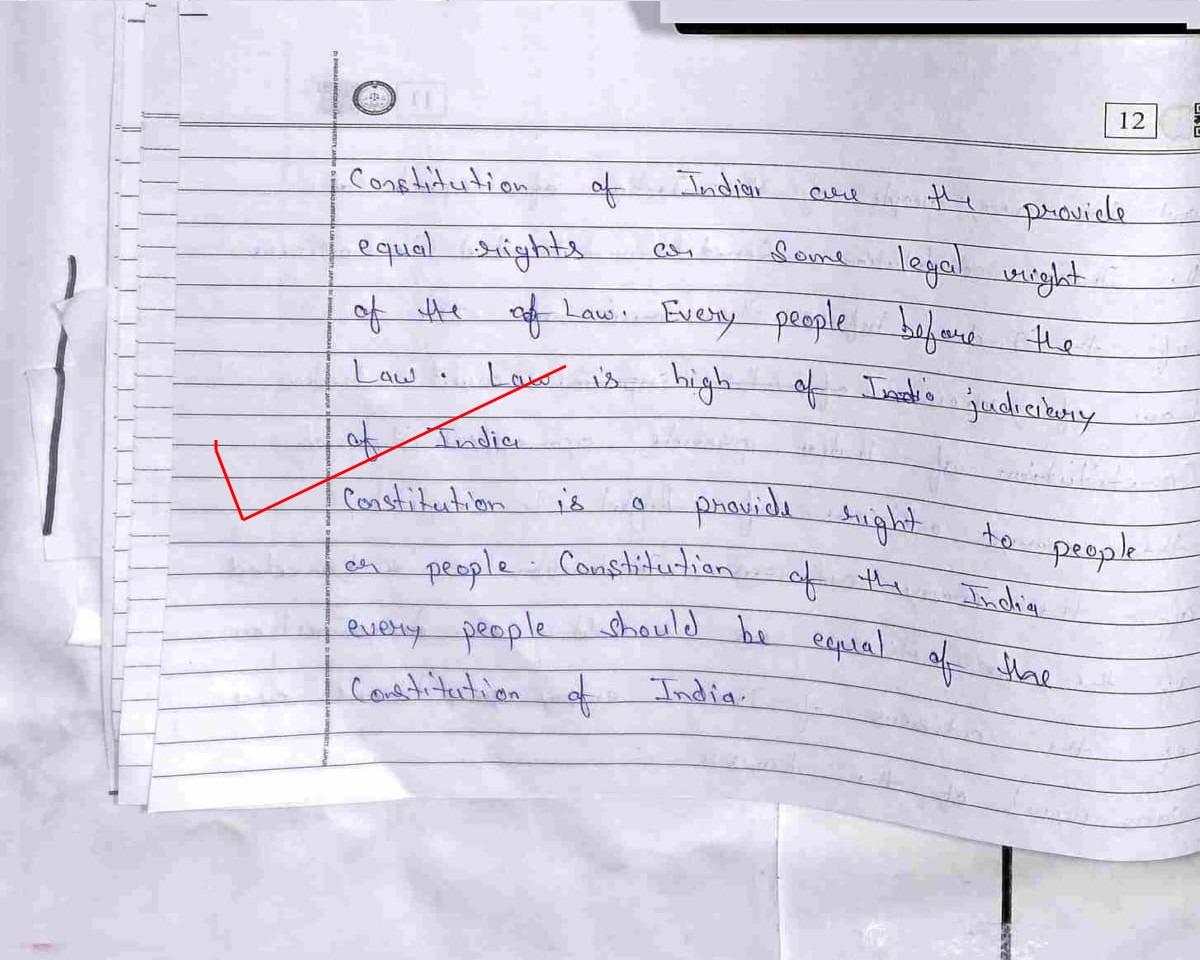 12
Constitution of Indian are the provide
equal rights or Some legal right
of the of Law. Every people before the
Law. Law is high of India judiciary
of India
Constitution is a provide right to people
or people. Constitution of the India
every people should be equal of the
Constitution of India.